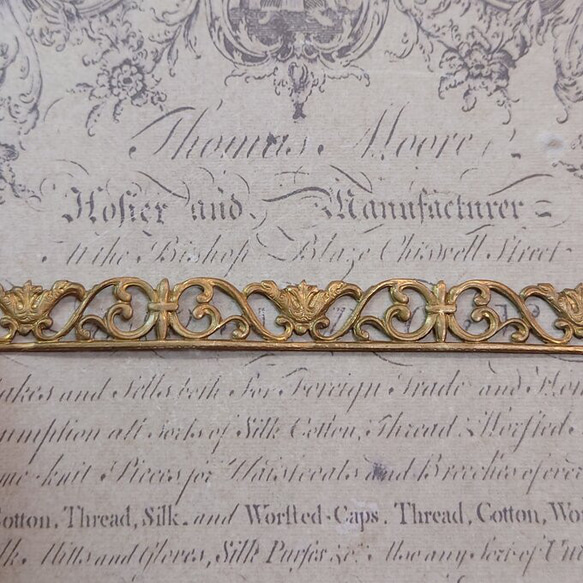 Thomas Moore
Hosier and Manufacturer
At the Bishop Blaze Chiswell Street
Makes and Sells both For Foreign Trade and Hom
sumption all Sorts of Silk Cotton, Thread Worsted
me knit Pieces for Waistcoats and Breeches of eve
Cotton, Thread, Silk, and Worsted-Caps. Thread, Cotton, Wo
lk. Mitts and Gloves, Silk Purses &c. Also any Sort of